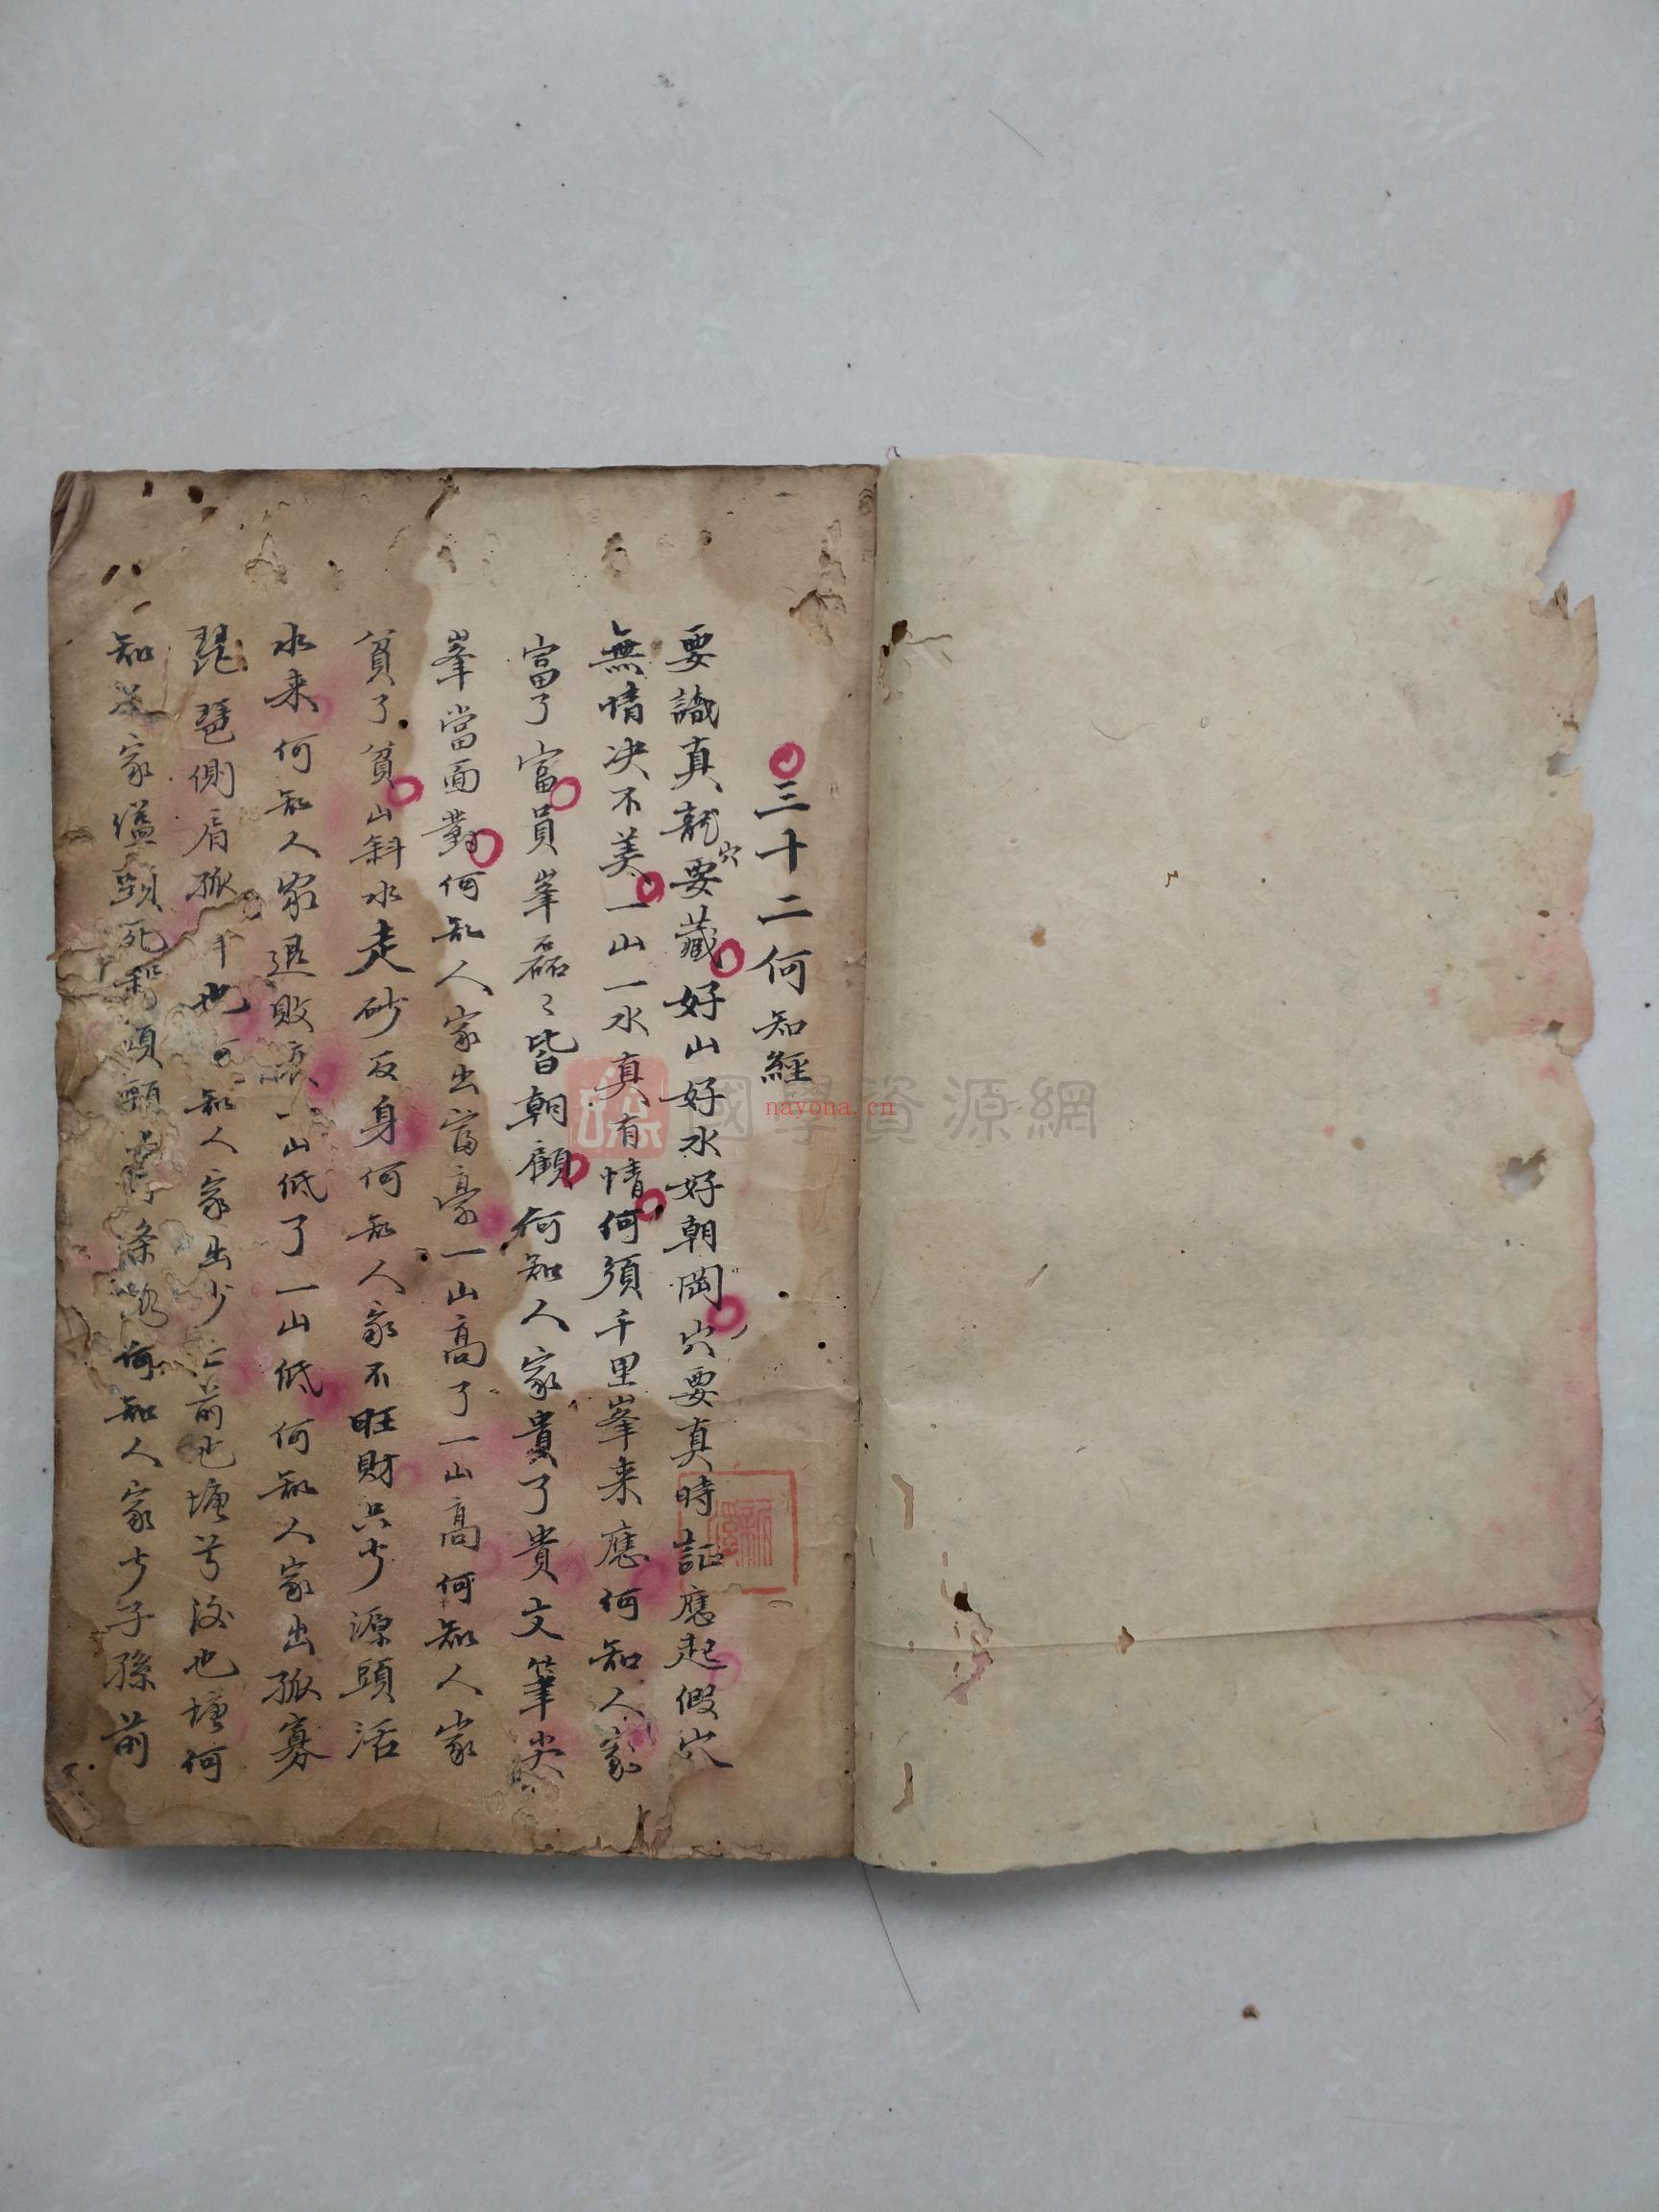 三十二何知經
要識真龍穴要藏好山好水好朝岡穴要真時証應起假穴
無情决不美一山一水真有情何須千里峯来應何知人家
富了富員峯磊〻皆朝顧何知人家貴了貴文筆尖
峯當面對何知人家出富豪一山高了一山高何知人家
貧了貧山斜水走砂反身何知人家不旺財只少源頭活
水来何知人家退敗一山低了一山低何知人家出孤寡
琵琶側肩孤也知人家出少亡前也塘兮後也塘何
知家縊頸死頸條路何知人家少子孫前
國學資源網
nayona.cn